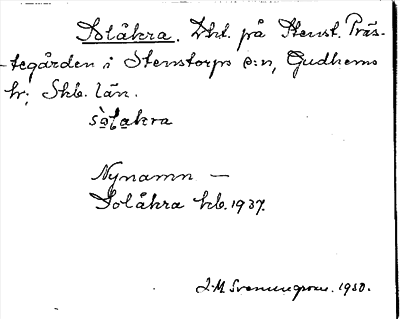 Solåkra. Lht. på Stenst. Präs-
tegården i Stenstorps s:n, Gudhems
hr; Skb. län.
sòlakra
Nynamn —
Solåkra hb. 1937.
J.M. 1930.